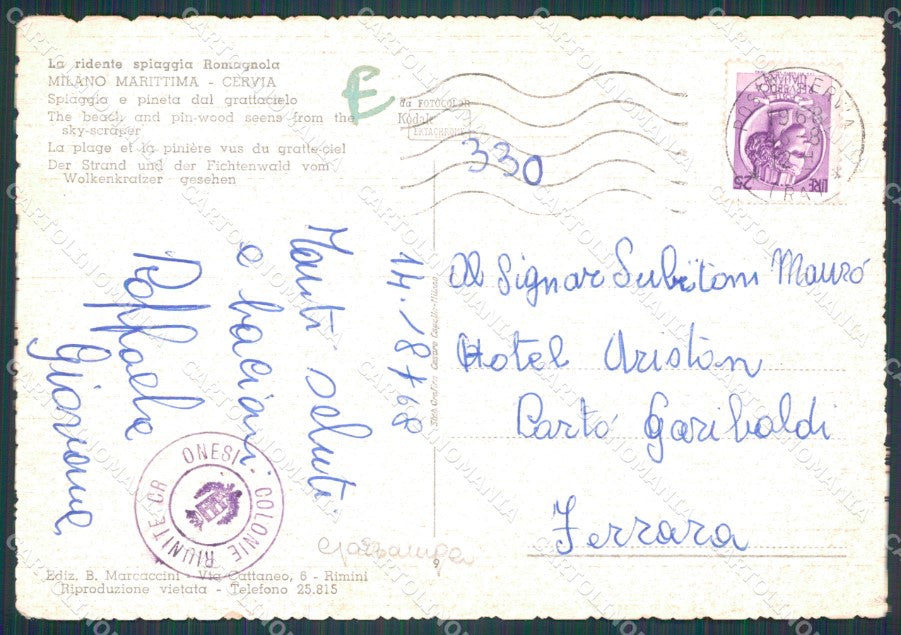 La ridente spiaggia Romagnola
MILANO MARITTIMA - CERVIA
Spiaggia e pineta dal grattacielo
The beach and pin-wood seens from the
sky-scraper
La plage et la pinière vus du gratte-ciel
Der Strand und der Fichtenwald vom
Wolkenkratzer gesehen
E
da FOTOCOLOR
Kodak
EKTACHROME
330
1968
LIRE 25
14.8.68
Tanti saluti
e bacioni
Raffaele
Giovanna
Al Signor Subitoni Mauro
Hotel Ariston
Corto Garibaldi
Ferrara
COLONIE RIUNITE CR ONESI
Ediz. B. Marcaccini - Via Cattaneo, 6 - Rimini
Riproduzione vietata - Telefono 25.815
9
CARTOLINOMANIA